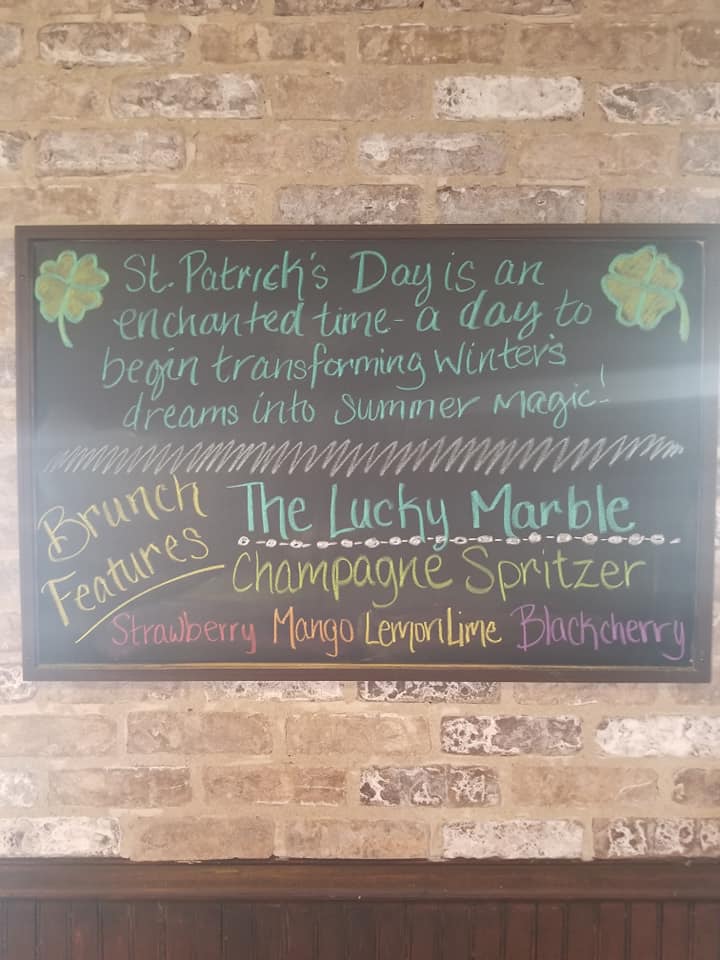 St. Patrick's Day is an
enchanted time - a day to
begin transforming Winter's
dreams into Summer Magic!
Brunch
Features
The Lucky Marble
Champagne Spritzer
Strawberry Mango Lemon Lime Blackcherry